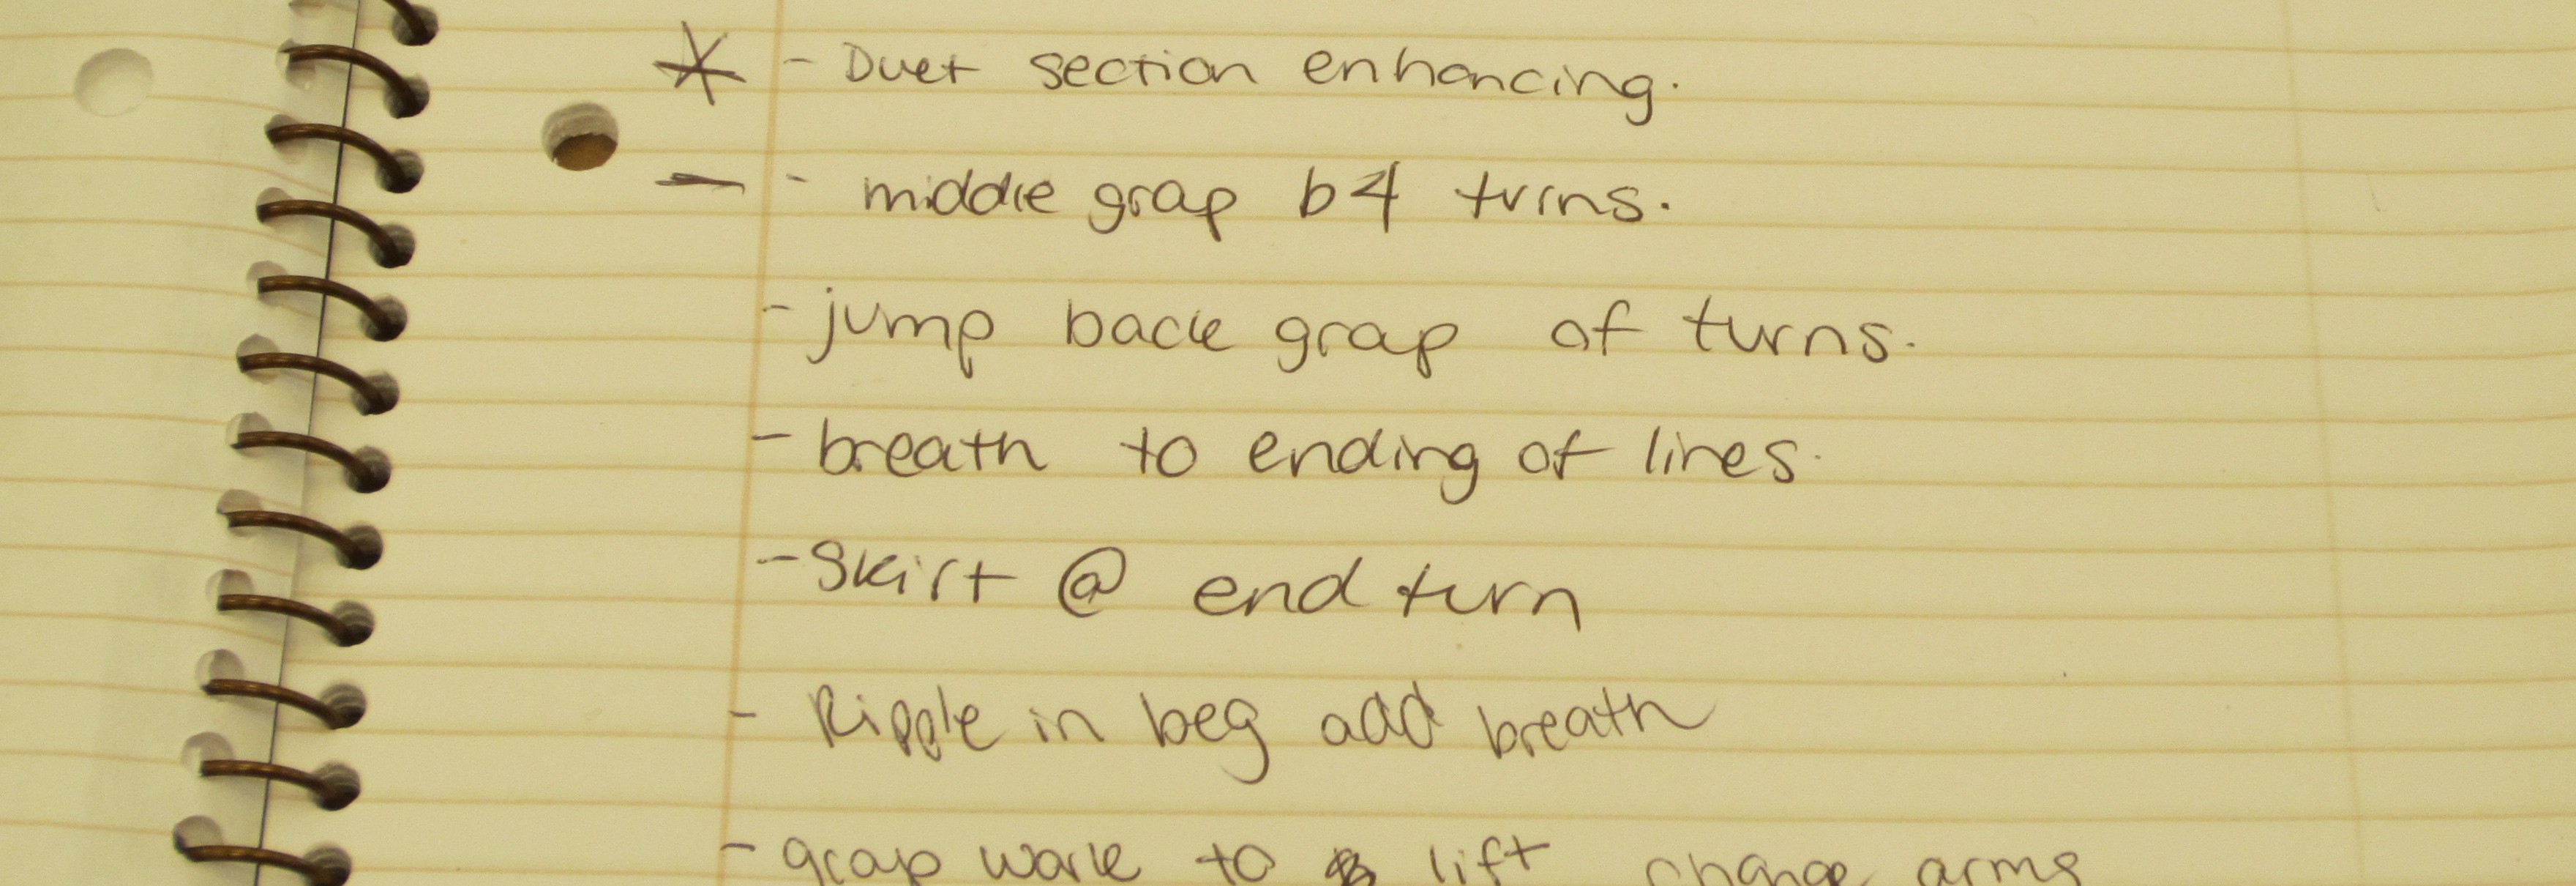 * - Duet section enhancing.
— - middle grap b4 turns.
- jump back grap of turns.
- breath to ending of lines.
- Skirt @ end turn
- Ripple in beg add breath
- grap work to lift change arms